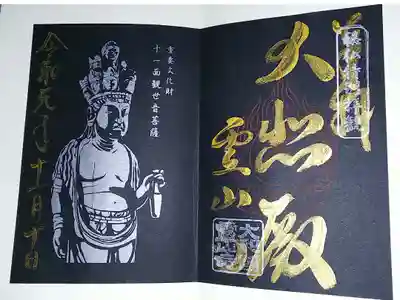 大悲殿
霊山
重要文化財
十一面観世音菩薩
令和元年十一月十日